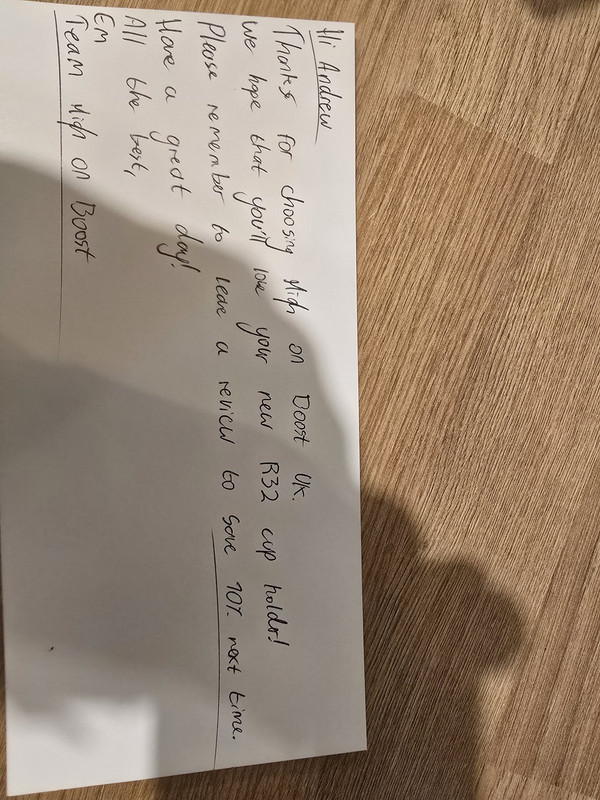 Hi Andrew
Thanks for choosing High on Boost UK.
We hope that you'll love your new R32 cup holdr!
Please remember to leave a review to save 10% next time.
Have a great day!
All the best,
Em
Team High on Boost